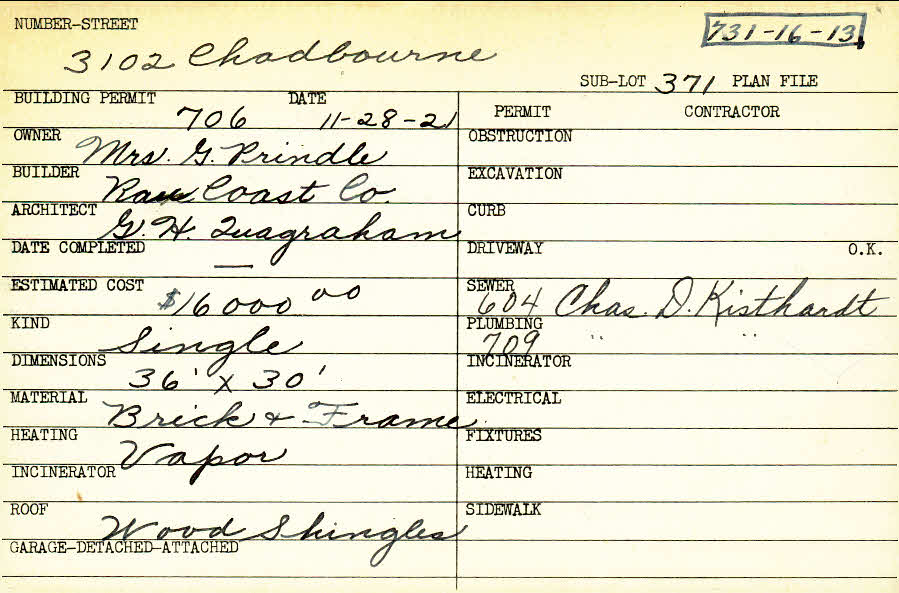 NUMBER-STREET
731-16-13
3102 Chadbourne
SUB-LOT 371 PLAN FILE
BUILDING PERMIT DATE
706 11-28-21
PERMIT CONTRACTOR
OWNER Mrs. G. Prindle
OBSTRUCTION
BUILDER Coast Co.
EXCAVATION
ARCHITECT G. H. Quagraham
CURB
DATE COMPLETED —
DRIVEWAY O.K.
ESTIMATED COST $16000 00
SEWER 604 Chas. D. Kisthardt
KIND Single
PLUMBING 709 " "
DIMENSIONS 36' x 30'
INCINERATOR
MATERIAL Brick & Frame
ELECTRICAL
HEATING Vapor
FIXTURES
INCINERATOR
HEATING
ROOF Wood Shingles
SIDEWALK
GARAGE-DETACHED-ATTACHED